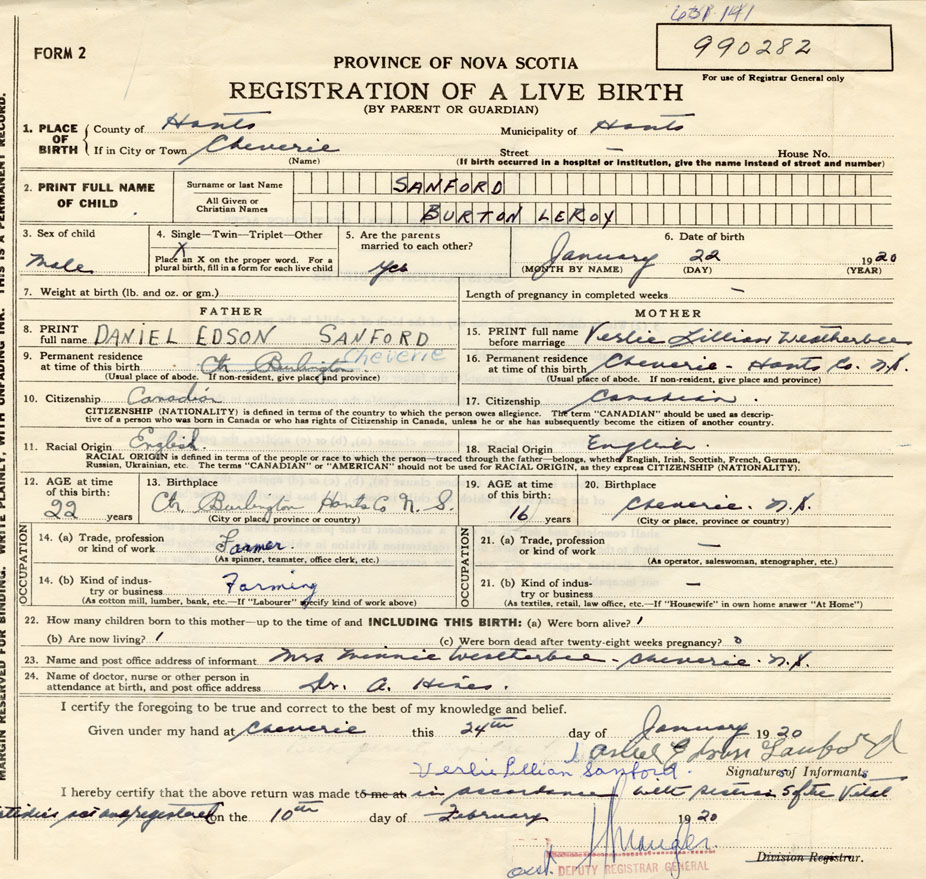 631 141
990282
FORM 2
For use of Registrar General only
PROVINCE OF NOVA SCOTIA
REGISTRATION OF A LIVE BIRTH
(BY PARENT OR GUARDIAN)
1. PLACE OF BIRTH
County of Hants Municipality of Hants
If in City or Town Cheverie Street — House No.
(Name) (If birth occurred in a hospital or institution, give the name instead of street and number)
2. PRINT FULL NAME OF CHILD
Surname or last Name SANFORD
All Given or Christian Names BURTON LEROY
3. Sex of child
male
4. Single—Twin—Triplet—Other
X
Place an X on the proper word. For a plural birth, fill in a form for each live child
5. Are the parents married to each other?
yes
6. Date of birth
January 22 1920
(MONTH BY NAME) (DAY) (YEAR)
7. Weight at birth (lb. and oz. or gm.) Length of pregnancy in completed weeks —
FATHER
8. PRINT full name DANIEL EDSON SANFORD
9. Permanent residence at time of this birth Ctr Burlington Cheverie
(Usual place of abode. If non-resident, give place and province)
10. Citizenship Canadian
MOTHER
15. PRINT full name before marriage Verlie Lillian Weatherbee
16. Permanent residence at time of this birth Cheverie - Hants Co. N.S.
(Usual place of abode. If non-resident, give place and province)
17. Citizenship Canadian.
CITIZENSHIP (NATIONALITY) is defined in terms of the country to which the person owes allegiance. The term "CANADIAN" should be used as descrip-
tive of a person who was born in Canada or who has rights of Citizenship in Canada, unless he or she has subsequently become the citizen of another country.
11. Racial Origin English. 18. Racial Origin English.
RACIAL ORIGIN is defined in terms of the people or race to which the person—traced through the father—belongs, whether English, Irish, Scottish, French, German,
Russian, Ukrainian, etc. The terms "CANADIAN" or "AMERICAN" should not be used for RACIAL ORIGIN, as they express CITIZENSHIP (NATIONALITY).
12. AGE at time of this birth: 22 years
13. Birthplace
Ctr. Burlington Hants Co N. S.
(City or place, province or country)
19. AGE at time of this birth: 16 years
20. Birthplace
Cheverie. N.S.
(City or place, province or country)
OCCUPATION
14. (a) Trade, profession or kind of work Farmer.
(As spinner, teamster, office clerk, etc.)
14. (b) Kind of indus- try or business Farming
(As cotton mill, lumber, bank, etc.—If "Labourer" specify kind of work above)
OCCUPATION
21. (a) Trade, profession or kind of work —
(As operator, saleswoman, stenographer, etc.)
21. (b) Kind of indus- try or business —
(As textiles, retail, law office, etc.—If "Housewife" in own home answer "At Home")
22. How many children born to this mother—up to the time of and INCLUDING THIS BIRTH: (a) Were born alive? 1
(b) Are now living? 1 (c) Were born dead after twenty-eight weeks pregnancy? 0
23. Name and post office address of informant Mrs Minnie Weatherbee - Cheverie. N.S.
24. Name of doctor, nurse or other person in attendance at birth, and post office address Dr. A. Hines.
I certify the foregoing to be true and correct to the best of my knowledge and belief.
Given under my hand at Cheverie this 24th day of January 1920
Daniel Edson Sanford
Verlie Lillian Sanford. Signatures of Informants
I hereby certify that the above return was made to me at in accordance with section 5 of the Vital
Statistics act and registered on the 10th day of February 1920
asst. DEPUTY REGISTRAR GENERAL
Division Registrar.
MARGIN RESERVED FOR BINDING. WRITE PLAINLY, WITH UNFADING INK. THIS IS A PERMANENT RECORD.